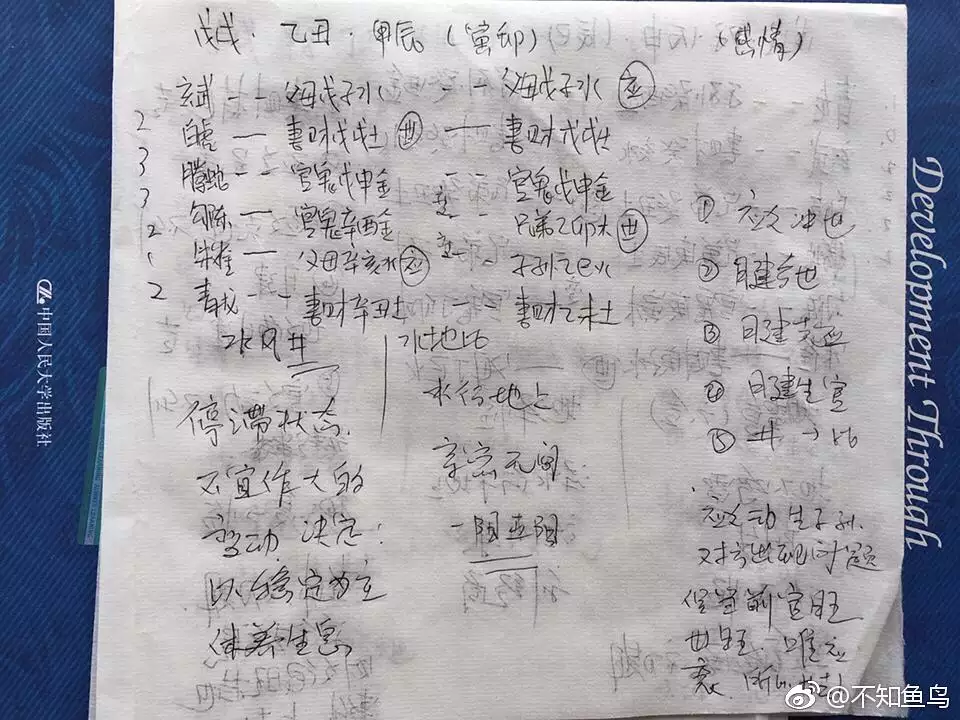 戊戌·乙丑·甲辰(寅卯) (感情)
玄武 -- 父母戊子水 -- 父母戊子水 应
2 白虎 — 妻财戊戌土 世 — 妻财戊戌土
3 腾蛇 -- 官鬼戊申金 -- 官鬼戊申金
3 勾陈 — 官鬼辛酉金 -- 兄弟乙卯木 世
2 朱雀 — 父母辛亥水 应 -- 子孙乙巳火
2 青龙 -- 妻财辛丑土 妻财乙未土
水风井
水地比
停滞状态.
不宜作大的
变动 决定:
以稳定为主
休养生息
水行地上
亲密无间
① 应爻冲世
② 日建合世
③ 日建克应
④ 日建生官
⑤ 井→比
应爻动生子孙.
对方出现问题
官旺
世旺. 唯应
衰.
中国人民大学出版社
Development Through
@不知鱼鸟